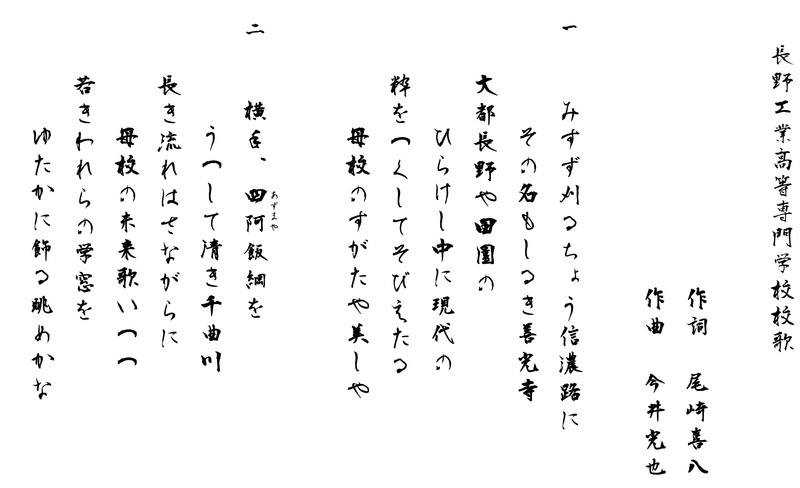 長野工業高等専門学校校歌
作詞　尾崎喜八
作曲　今井光也
一
みすず刈るちょう信濃路に
その名もしるき善光寺
大都長野や田園の
ひらけし中に現代の
粋をつくしてそびえたる
母校のすがたや美しや
二
横手、四阿飯綱を
あずまや
うつして清き千曲川
長き流れはさながらに
母校の未来歌いつつ
若きわれらの学窓を
ゆたかに飾る眺めかな